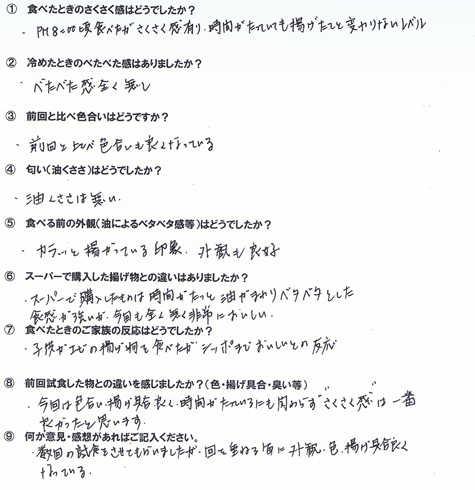 ① 食べたときのさくさく感はどうでしたか？
・PM8:00頃食べたがさくさく感有り、時間がたっていても揚げたてと変わりないレベル
② 冷めたときのべたべた感はありましたか？
・べたべた感全く無し
③ 前回と比べ色合いはどうですか？
・前回と比べ色合いも良くなっている
④ 匂い（油くささ）はどうでしたか？
・油くささは無い．
⑤ 食べる前の外観（油によるベタベタ感等）はどうでしたか？
・カラッと揚がっている印象．外観も良好
⑥ スーパーで購入した揚げ物との違いはありましたか？
・スーパーで購入したものは時間がたつと油がまわりベタベタとした
食感が強いが、今回も全く無く非常においしい．
⑦ 食べたときのご家族の反応はどうでしたか？
・子供がエビの揚げ物を食べたがシッポまでおいしいとの反応
⑧ 前回試食した物との違いを感じましたか？（色・揚げ具合・臭い等）
・今回は色合い、揚げ具合良く、時間がたっているにも関わらず"さくさく感"は一番
良かったと思います．
⑨ 何か意見・感想があればご記入ください。
・数回の試食をさせてもらいましたが、回を重ねる毎に外観、色、揚げ具合良く
なっている．